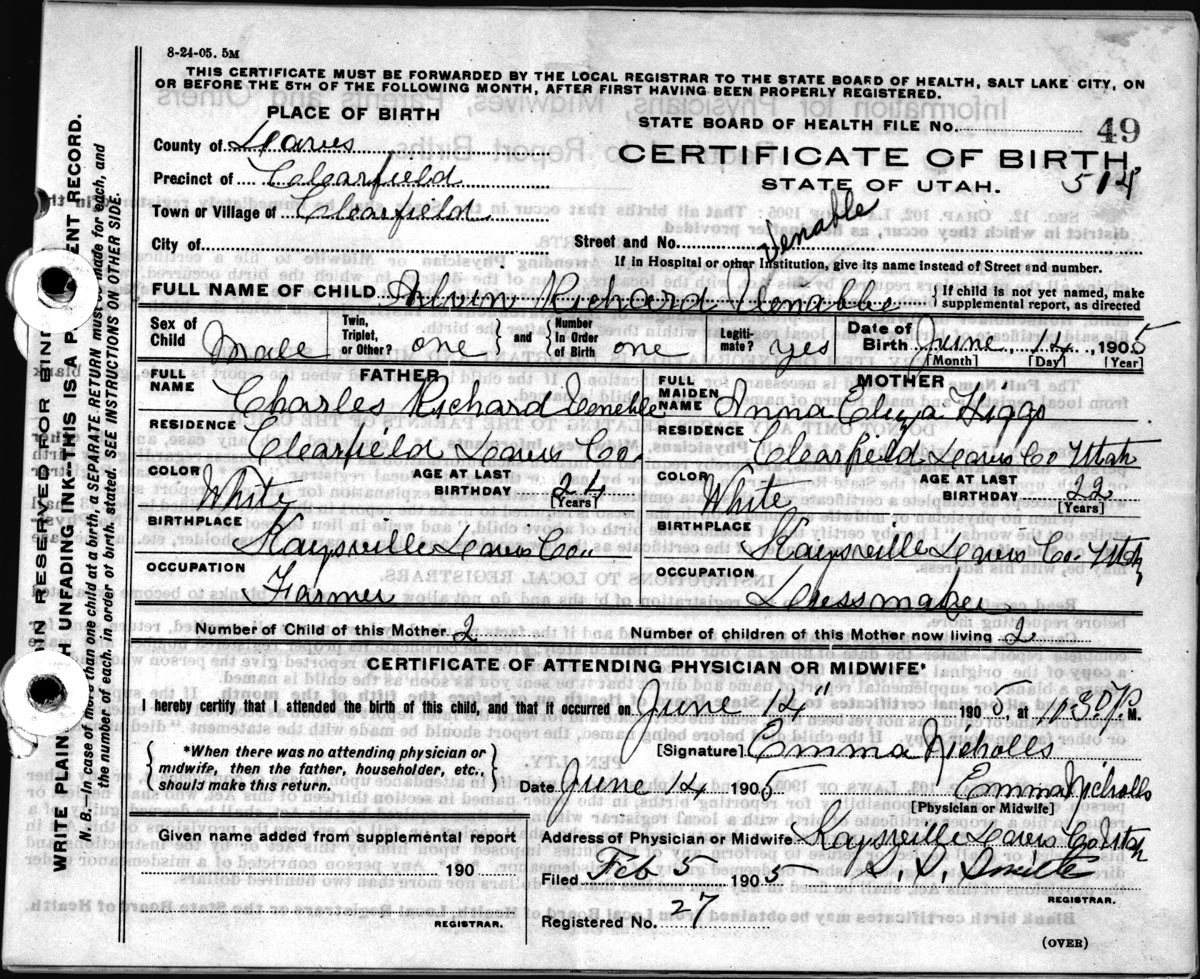 8-24-05. 5M
THIS CERTIFICATE MUST BE FORWARDED BY THE LOCAL REGISTRAR TO THE STATE BOARD OF HEALTH, SALT LAKE CITY, ON
OR BEFORE THE 5TH OF THE FOLLOWING MONTH, AFTER FIRST HAVING BEEN PROPERLY REGISTERED.
PLACE OF BIRTH
STATE BOARD OF HEALTH FILE No. 49
County of Davis
CERTIFICATE OF BIRTH,
Precinct of Clearfield
STATE OF UTAH. 514
Town or Village of Clearfield
City of
Street and No. Venable
If in Hospital or other Institution, give its name instead of Street and number.
FULL NAME OF CHILD Alvin Richard Venable { If child is not yet named, make
supplemental report, as directed
Sex of Child Male Twin, Triplet, or Other? one } and { Number In Order of Birth one Legiti- mate? yes Date of Birth June 14, 1905
[Month] [Day] [Year]
FATHER
FULL NAME Charles Richard Venable
RESIDENCE Clearfield Davis Co.
COLOR White AGE AT LAST BIRTHDAY 24
[Years]
BIRTHPLACE Kaysville Davis Co.
OCCUPATION Farmer
MOTHER
FULL MAIDEN NAME Anna Eliza Higgs
RESIDENCE Clearfield Davis Co Utah
COLOR White AGE AT LAST BIRTHDAY 22
[Years]
BIRTHPLACE Kaysville Davis Co. Utah
OCCUPATION Dressmaker
Number of Child of this Mother 2 Number of children of this Mother now living 2
CERTIFICATE OF ATTENDING PHYSICIAN OR MIDWIFE*
I hereby certify that I attended the birth of this child, and that it occurred on June 14" 1905, at 11 30 P. M.
{ *When there was no attending physician or
midwife, then the father, householder, etc.,
should make this return. }
[Signature] Emma Nicholls
Date June 14 1905 Emma Nicholls
[Physician or Midwife]
Given name added from a supplemental report
190
REGISTRAR.
Address of Physician or Midwife Kaysville Davis Co Utah
Filed Feb 5 1905
REGISTRAR.
Registered No. 27
(OVER)
WRITE PLAIN H UNFADING INK-THIS IS A P ENT RECORD.
IN RESERVED FOR BIND
N. B.—In case of more than one child at a birth, a SEPARATE RETURN must be made for each, and
the number of each, in order of birth, stated. SEE INSTRUCTIONS ON OTHER SIDE.